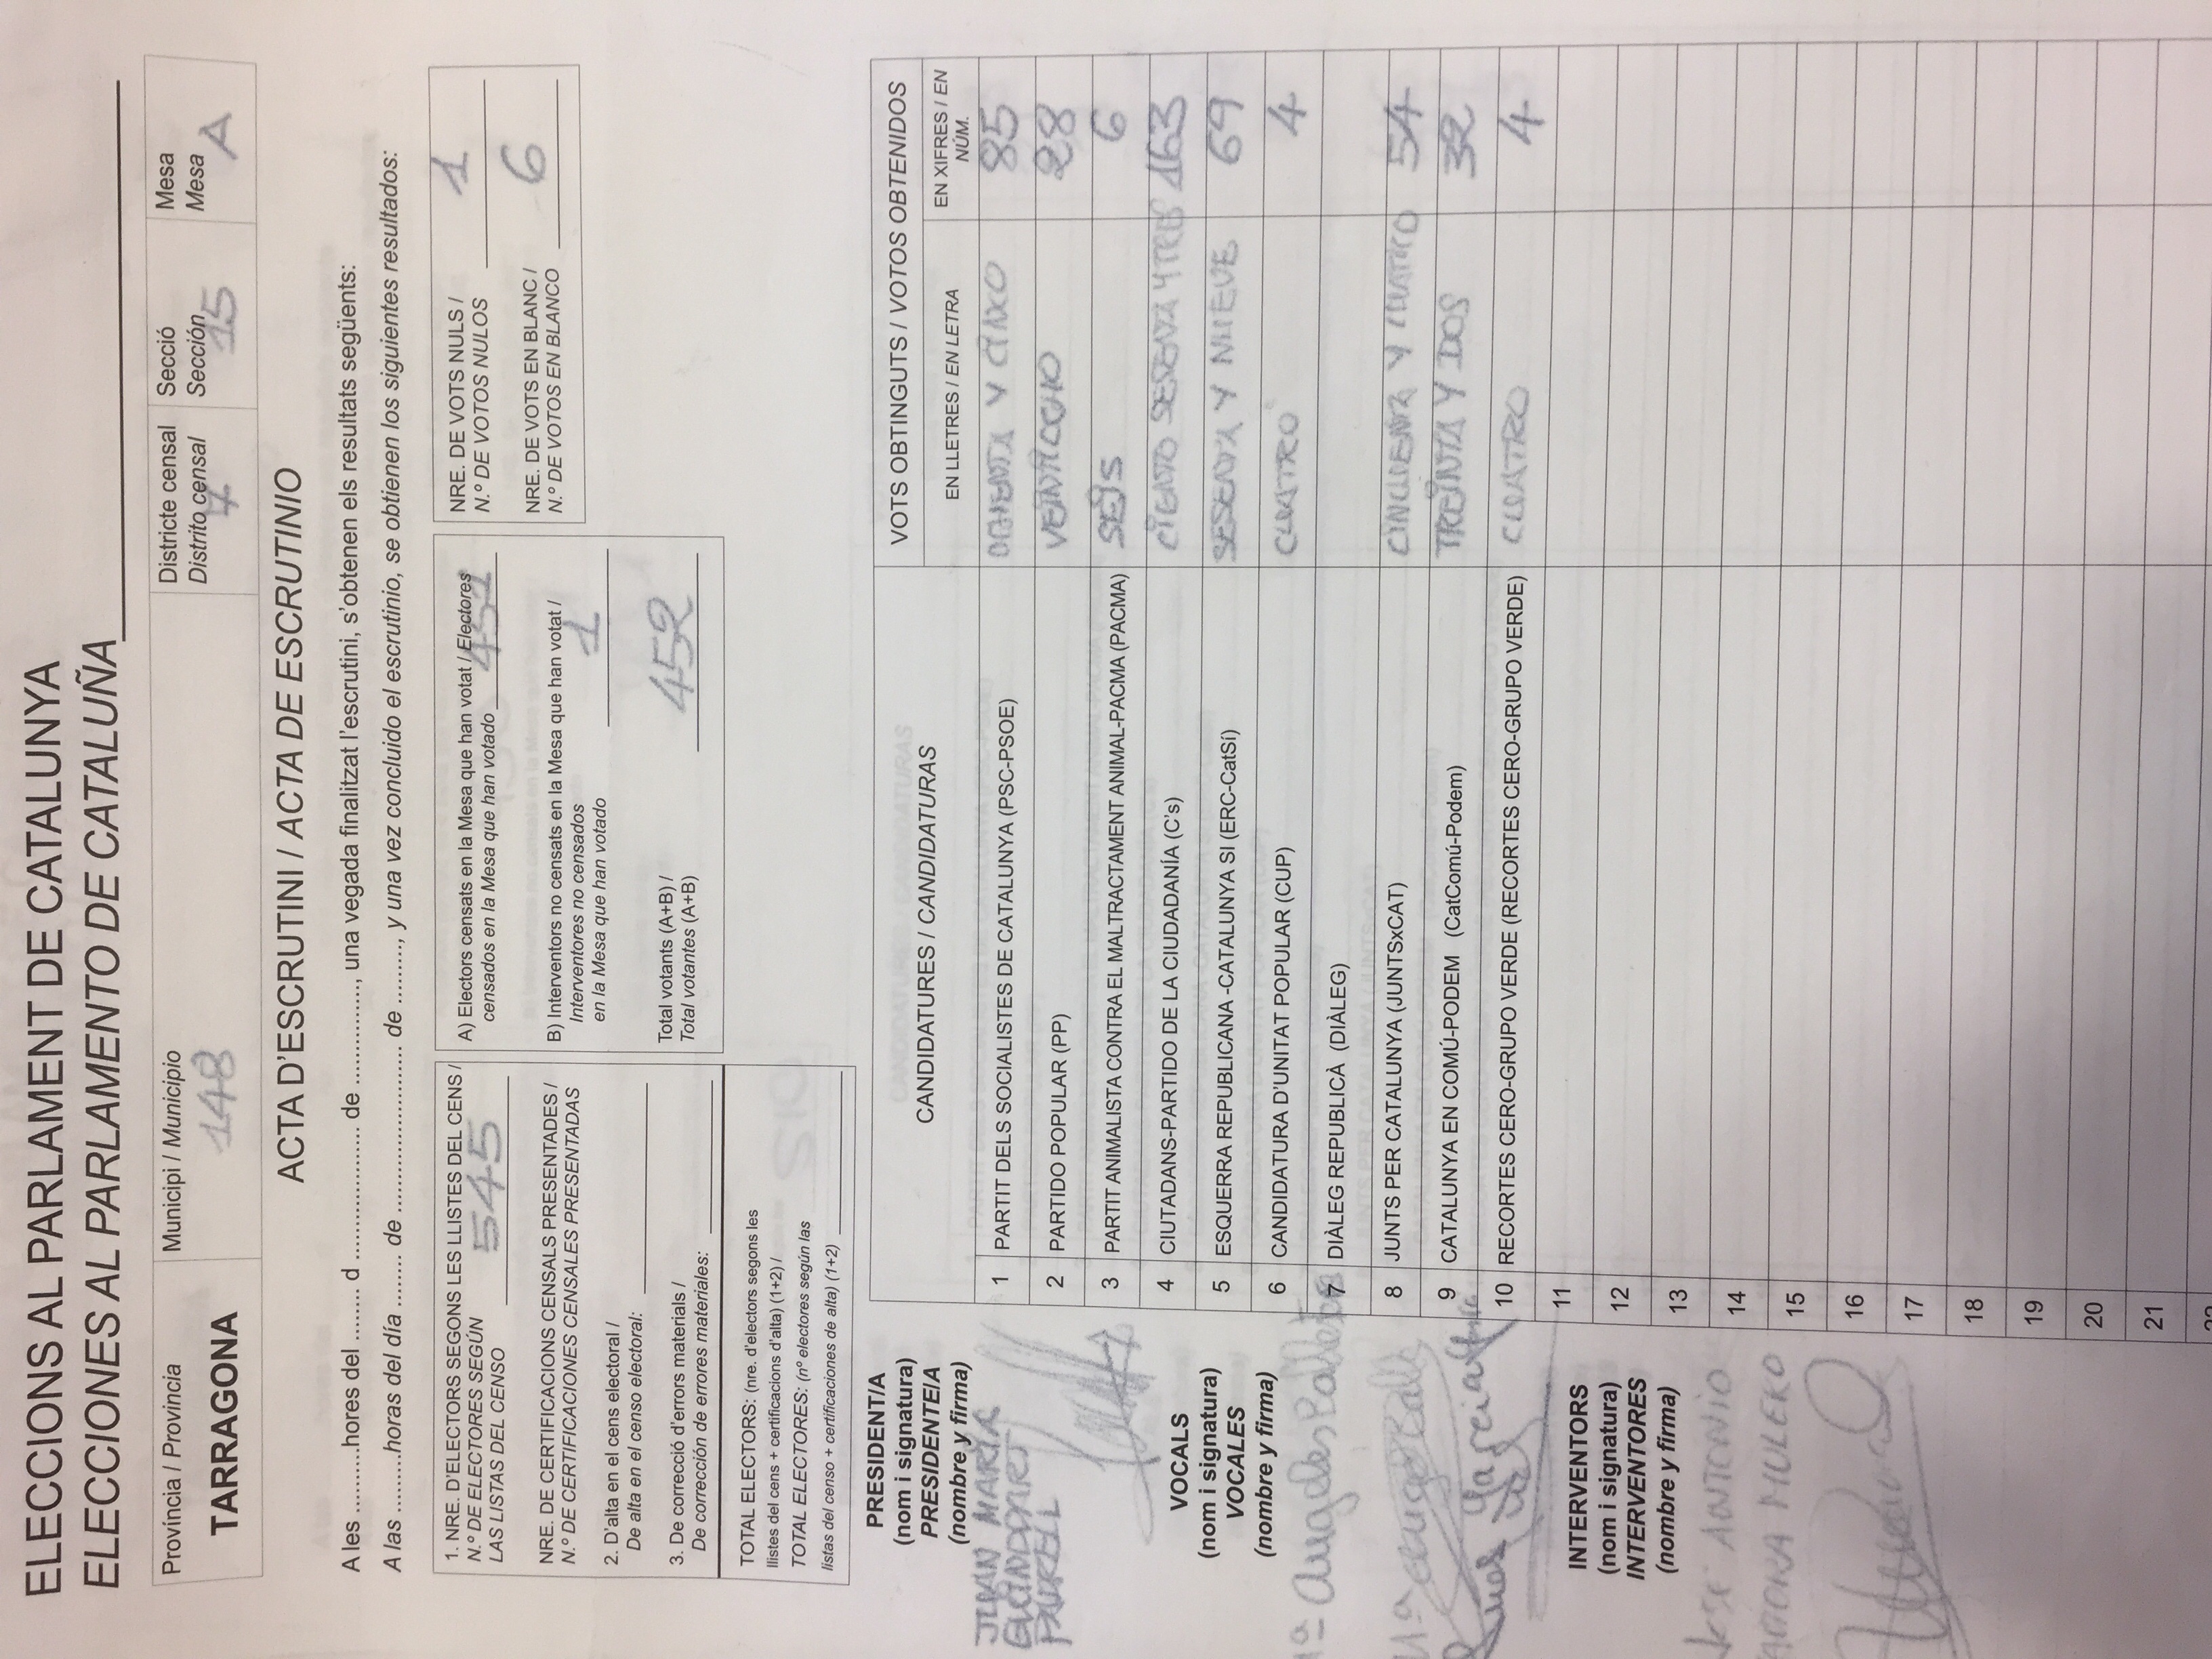 ELECCIONS AL PARLAMENT DE CATALUNYA
ELECCIONES AL PARLAMENTO DE CATALUÑA
Província / Provincia
TARRAGONA
Municipi / Municipio
148
Districte censal
Distrito censal
7
Secció
Sección
15
Mesa
Mesa
A
ACTA D'ESCRUTINI / ACTA DE ESCRUTINIO
A les .........hores del ........ d .................. de .............., una vegada finalitzat l'escrutini, s'obtenen els resultats següents:
A las .........horas del día ........ de ....................... de ........., y una vez concluido el escrutinio, se obtienen los siguientes resultados:
1. NRE. D'ELECTORS SEGONS LES LLISTES DEL CENS /
N.º DE ELECTORES SEGÚN
LAS LISTAS DEL CENSO 545
NRE. DE CERTIFICACIONS CENSALS PRESENTADES /
N.º DE CERTIFICACIONES CENSALES PRESENTADAS
2. D'alta en el cens electoral /
De alta en el censo electoral:
3. De correcció d'errors materials /
De corrección de errores materiales:
TOTAL ELECTORS: (nre. d'electors segons les
llistes del cens + certificacions d'alta) (1+2) /
TOTAL ELECTORES: (nº electores según las
listas del censo + certificaciones de alta) (1+2)
A) Electors censats en la Mesa que han votat / Electores
censados en la Mesa que han votado 451
B) Interventors no censats en la Mesa que han votat /
Interventores no censados
en la Mesa que han votado 1
Total votants (A+B) /
Total votantes (A+B) 452
NRE. DE VOTS NULS /
N.º DE VOTOS NULOS 1
NRE. DE VOTS EN BLANC /
N.º DE VOTOS EN BLANCO 6
PRESIDENT/A
(nom i signatura)
PRESIDENTE/A
(nombre y firma)
JUAN MARIA
VOCALS
(nom i signatura)
VOCALES
(nombre y firma)
Mª Angeles
INTERVENTORS
(nom i signatura)
INTERVENTORES
(nombre y firma)
JOSE ANTONIO
MULERO
CANDIDATURES / CANDIDATURAS
VOTS OBTINGUTS / VOTOS OBTENIDOS
EN LLETRES / EN LETRA
EN XIFRES / EN
NÚM.
1 PARTIT DELS SOCIALISTES DE CATALUNYA (PSC-PSOE) OCHENTA Y CINCO 85
2 PARTIDO POPULAR (PP) VEINTIOCHO 28
3 PARTIT ANIMALISTA CONTRA EL MALTRACTAMENT ANIMAL-PACMA (PACMA) SEIS 6
4 CIUTADANS-PARTIDO DE LA CIUDADANÍA (C's) CIENTO SESENTA Y TRES 163
5 ESQUERRA REPUBLICANA -CATALUNYA SI (ERC-CatSí) SESENTA Y NUEVE 69
6 CANDIDATURA D'UNITAT POPULAR (CUP) CUATRO 4
7 DIÀLEG REPUBLICÀ (DIÀLEG)
8 JUNTS PER CATALUNYA (JUNTSxCAT) CINCUENTA Y CUATRO 54
9 CATALUNYA EN COMÚ-PODEM (CatComú-Podem) TREINTA Y DOS 32
10 RECORTES CERO-GRUPO VERDE (RECORTES CERO-GRUPO VERDE) CUATRO 4
11
12
13
14
15
16
17
18
19
20
21